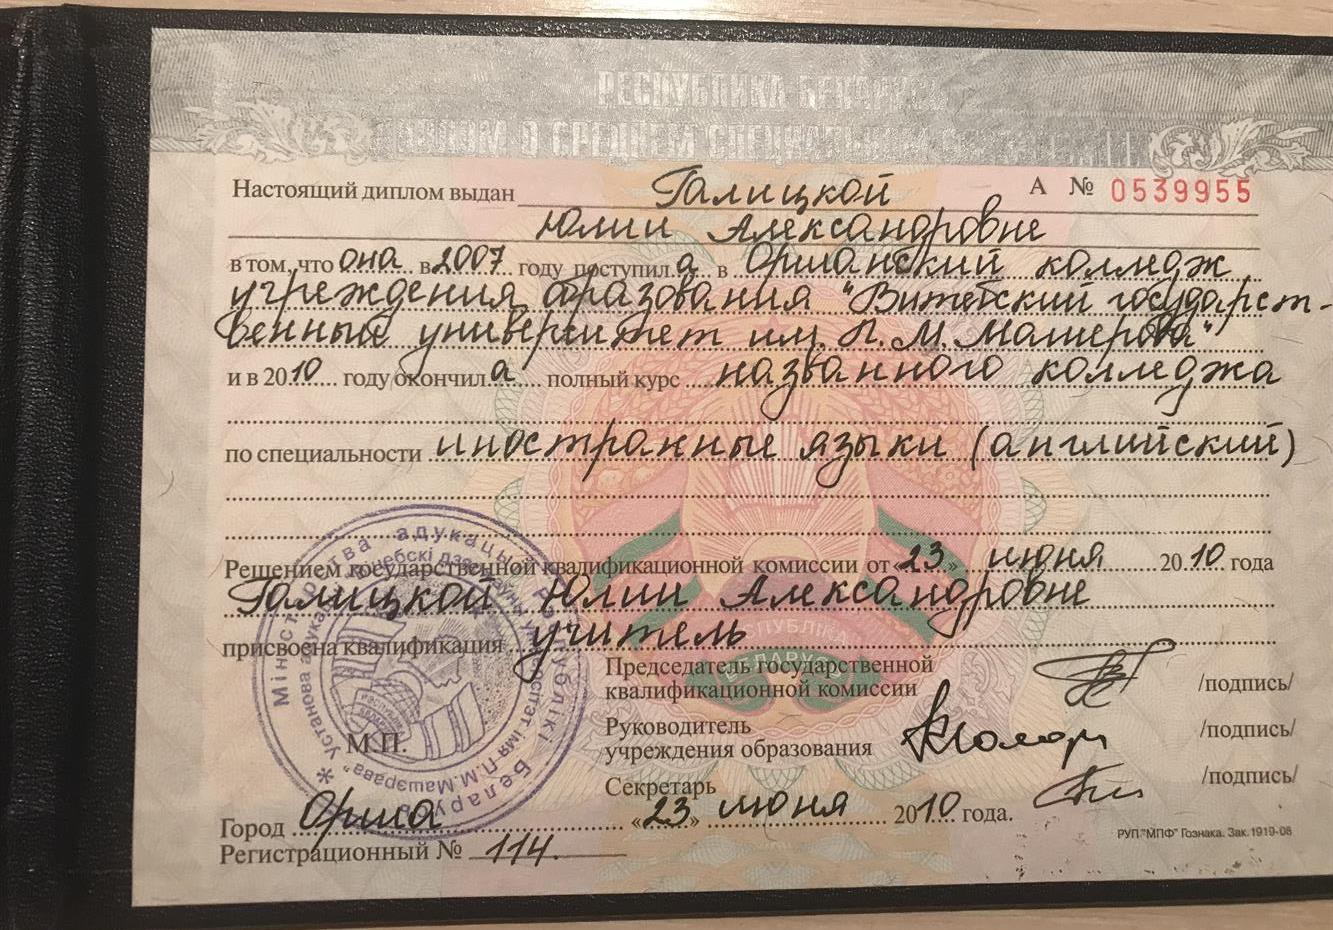 РЕСПУБЛИКА БЕЛАРУСЬ
ДИПЛОМ О СРЕДНЕМ СПЕЦИАЛЬНОМ
Настоящий диплом выдан Галицкой А № 0539955
Юлии Александровне
в том, что она в 2007 году поступила в Оршанский колледж
учреждения образования "Витебский государст-
венный университет им. П.М. Машерова"
и в 2010 году окончила полный курс названного колледжа
по специальности иностранные языки (английский)
Решением государственной квалификационной комиссии от «23» июня 2010 года
Галицкой Юлии Александровне
присвоена квалификация учитель
Председатель государственной
квалификационной комиссии /подпись/
Руководитель
учреждения образования /подпись/
Секретарь /подпись/
М.П.
Город Орша «23» июня 2010 года.
Регистрационный № 114.
РУП "МПФ" Гознака. Зак. 1919-08
Міністэрства адукацыі Рэспублікі Беларусь